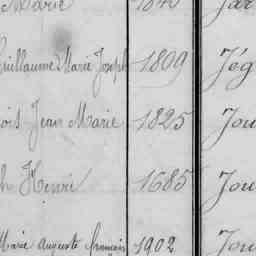 Marie 1840 Jar
Guillaume Marie Joseph 1809 Jég
ois Jean Marie 1825 Jou
h Henri 1685 Jou
Marie Auguste françois 1902 Jou